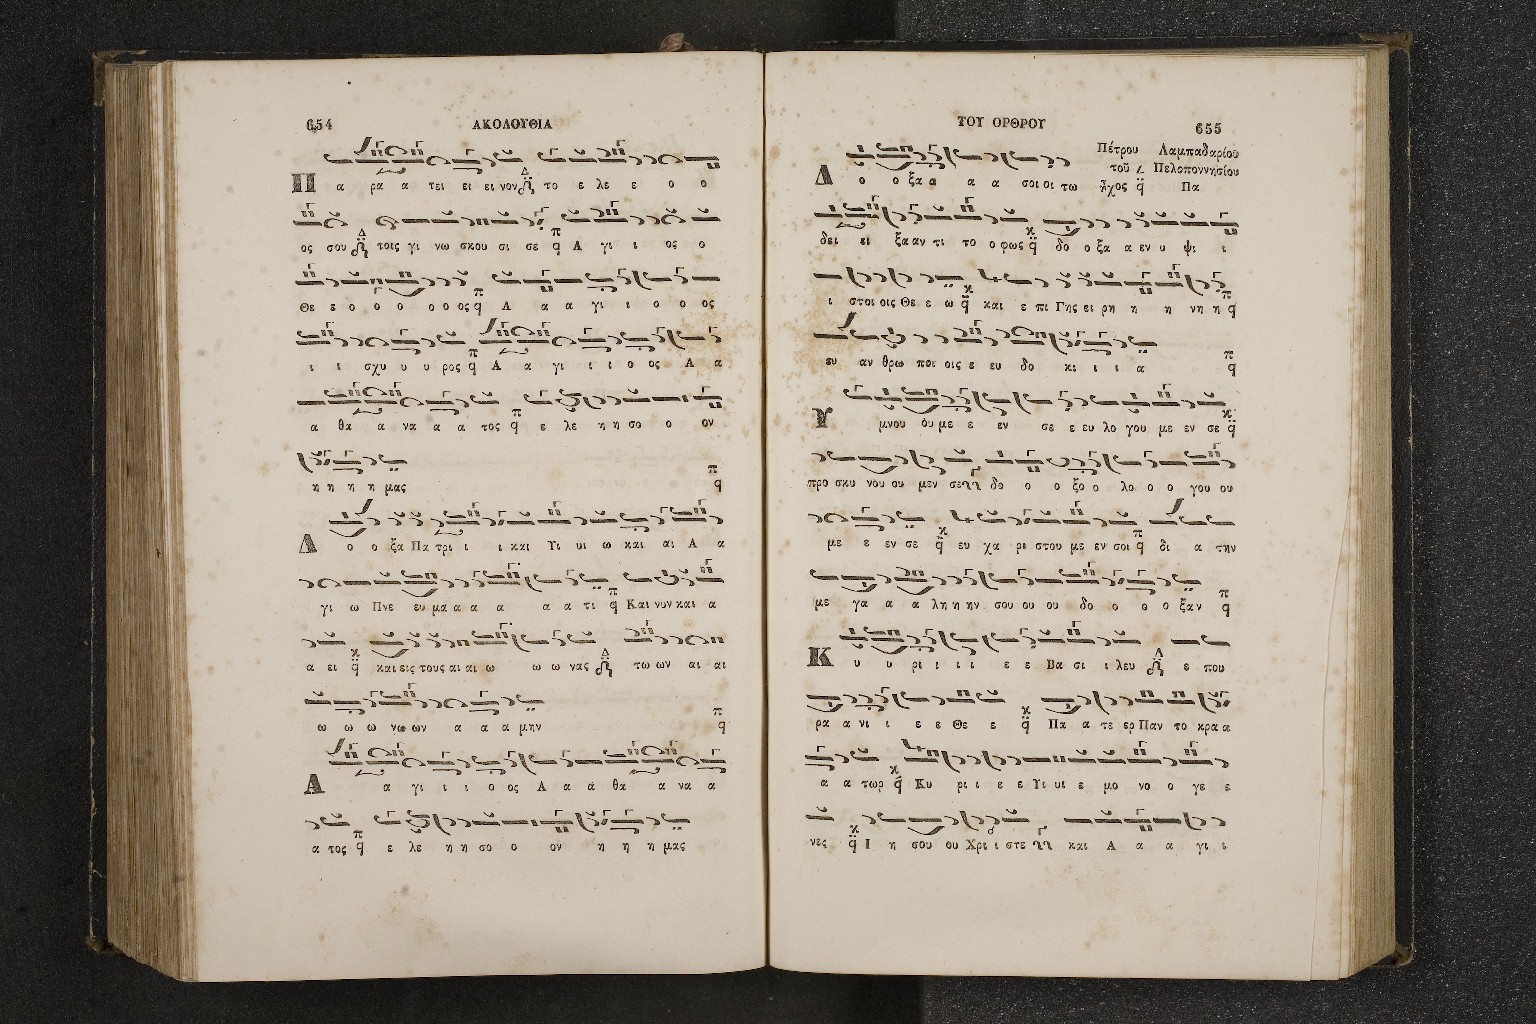 654 ΑΚΟΛΟΥΘΙΑ
Π α ρα α τει ει ει νον το ε λε ε ο ο
ος σου τοις γι νω σκου σι σε Α γι ι ος ο
Θε ε ο ο ο ο ο ος Α α α γι ι ο ο ος
ι ι σχυ υ υ ρος Α α γι ι ι ο ος Α α
α θα α να α α τος ε λε η η σο ο ον
η η η η μας
Δ ο ο ξα Πα τρι ι ι και Υι υι ω και αι Α α
γι ω Πνε ευ μα α α α α α τι Και νυν και α
α ει και εις τους αι αι ω ω ω νας τω ων αι αι
ω ω ω νω ων α α α μην
Α α γι ι ι ο ος Α α α θα α να α
α τος ε λε η η σο ο ον η η η μας
ΤΟΥ ΟΡΘΡΟΥ 655
Πέτρου Λαμπαδαρίου
τοῦ Πελοποννησίου
Δ ο ο ξα α α α σοι οι τω ἦχος Πα
δει ει ξα αν τι το ο φως δο ο ξα α εν υ ψι ι
ι στοι οις Θε ε ω και ε πι Γης ει ρη η η νη η
ευ αν θρω ποι οις ε ευ δο κι ι ι α
Υ μνου ου με ε εν σε ε ευ λο γου με εν σε
προ σκυ νου ου μεν σε δο ο ο ξο ο λο ο ο γου ου
με ε εν σε ευ χα ρι στου με εν σοι δι α την
με γα α α λη η ην σου ου ου δο ο ο ο ξαν
Κ υ υ ρι ι ι ι ε ε Βα σι ι λευ ε που
ρα α νι ι ε ε Θε ε Πα α τε ερ Παν το κρα α
α α τωρ Κυ ρι ι ε ε Υι υι ε μο νο ο γε ε
νες Ι η σου ου Χρι ι στε και Α α α γι ι